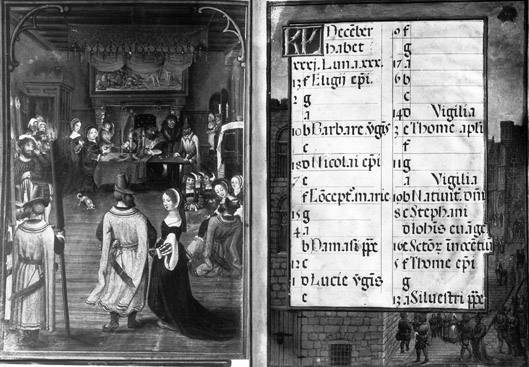 KL Decēber
habet
xxxj. Luna. xxx.
f Eligij ep̄i.
2 g
a
10 b Barbare v̄gis
18 d Nicolai ep̄i
7 e
f Cōcept. marie
15 g
4 a
b Damasi pp̄e
12 c
1 d Lucie v̄gis
e
9 f
g
17 a
6 b
c
14 d Vigilia
3 e Thome apl̄i
f
11 g
a Vigilia
b Natiuit. dn̄i
8 c Stephani
d Ioh̄is euāge
16 e Sctōr inocētiū
5 f Thome ep̄i
g
13 a Siluestri pp̄e